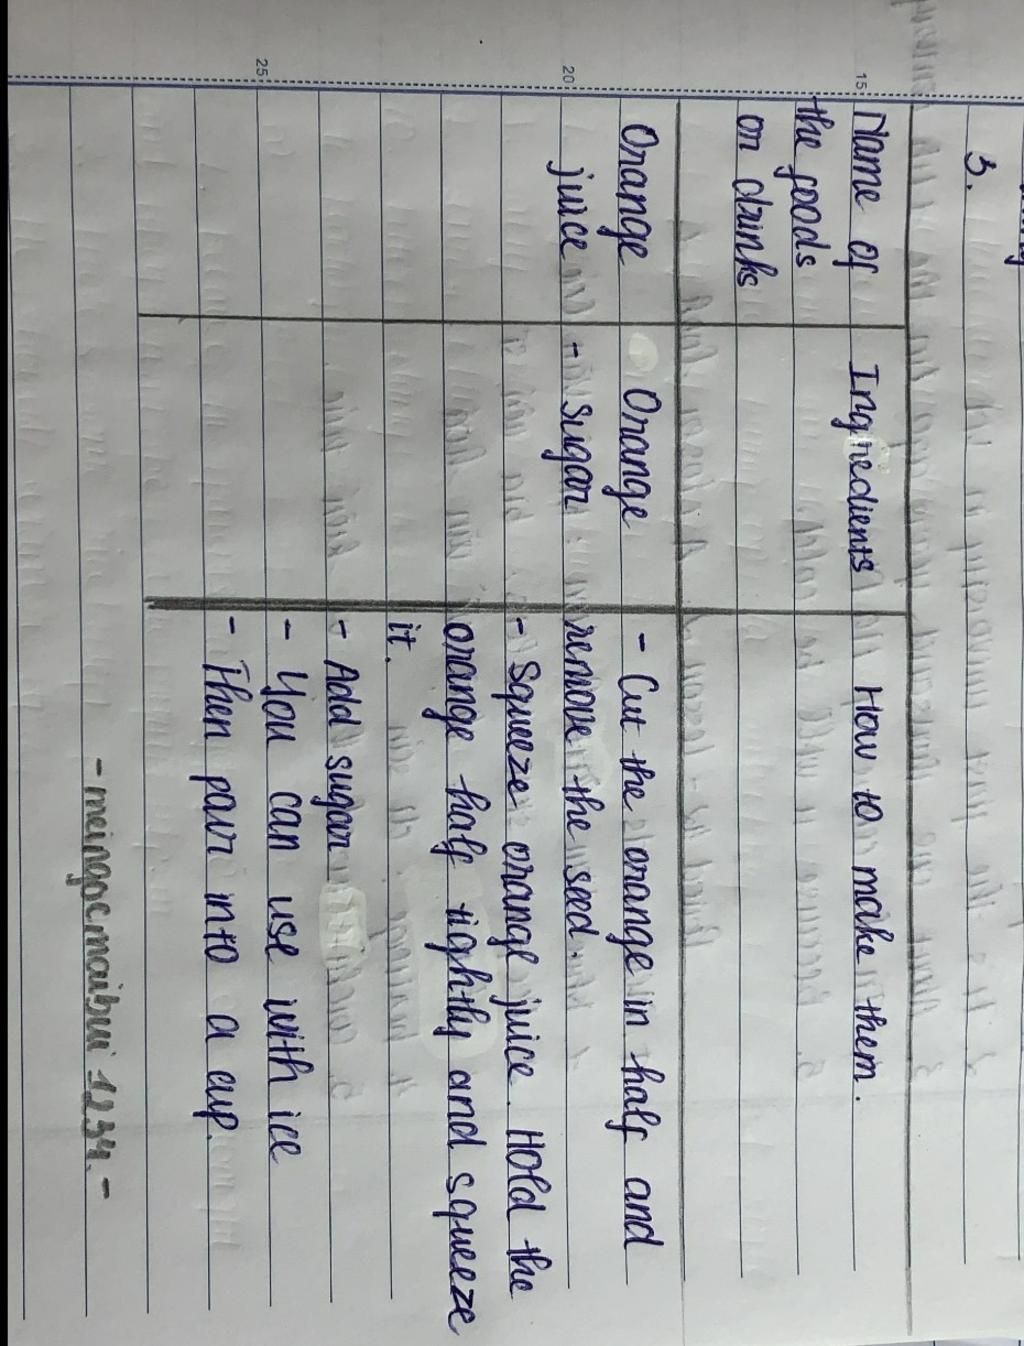 3.
Name of
the foods
on drinks
Ingredients
How to make them.
Orange
juice
Orange
- Sugar
- Cut the orange in half and
remove the seed.
- Squeeze orange juice. Hold the
orange half tightly and squeeze
it.
- Add sugar
- You can use with ice
- Then pour into a cup.
- meingocmaibui 1234. -
15
20
25